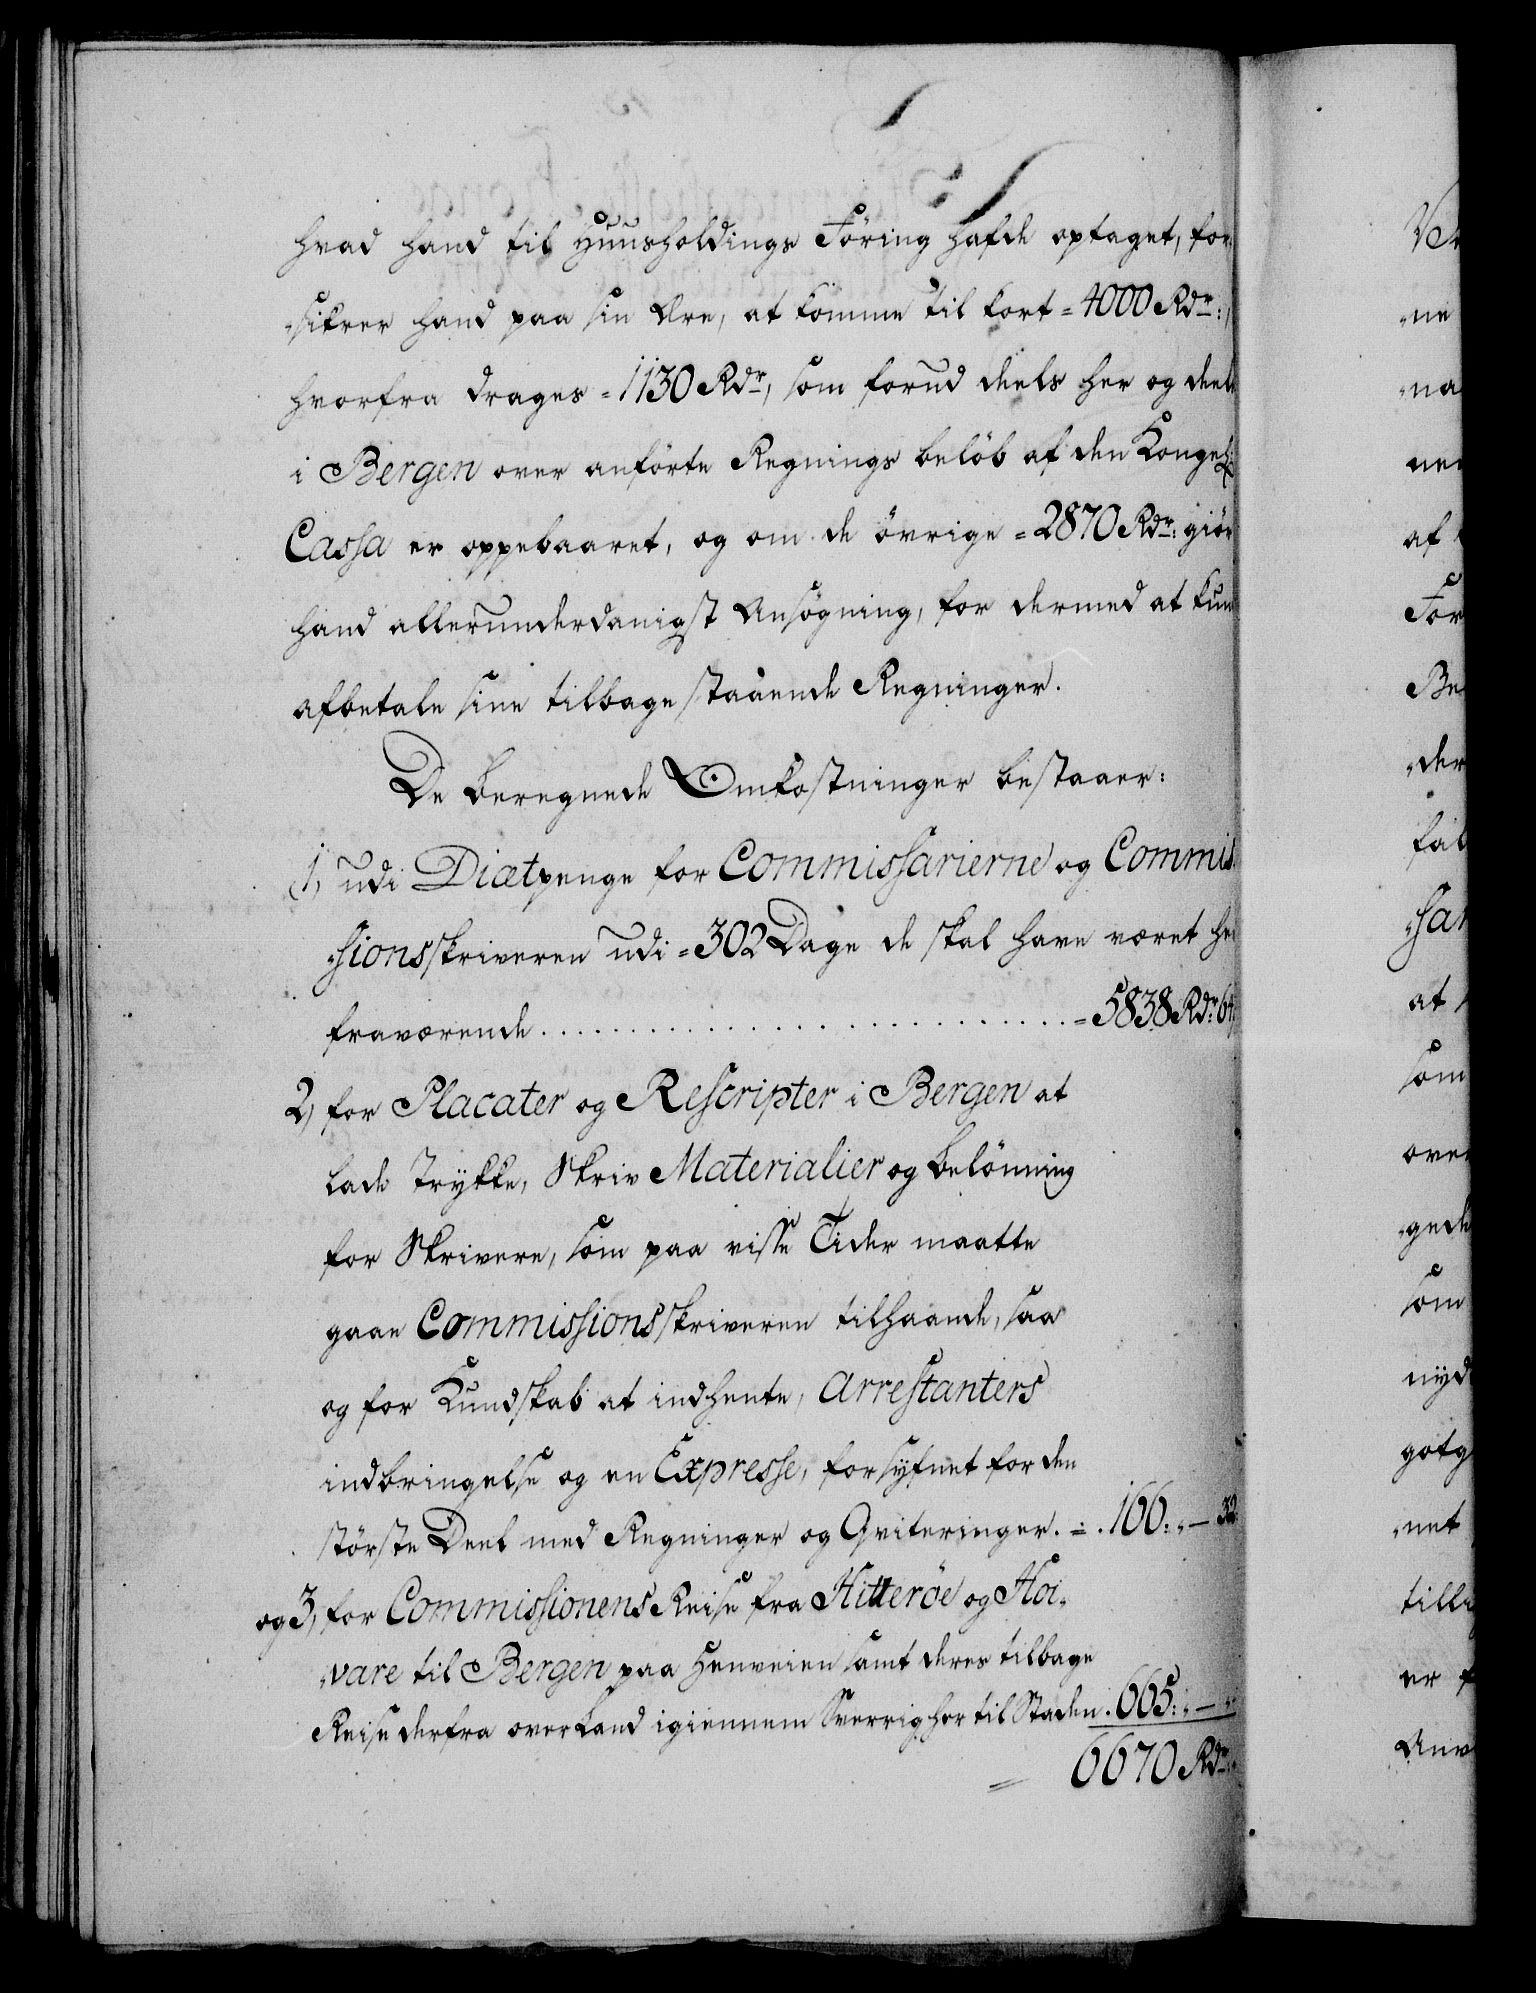 hvad hand til Huusholdings Föring hafde optaget, for-
„sikrer hand paa sin Ære, at komme til kort = 4000 Rdr:,
hvorfra drages = 1130 Rdr, som forud deels her og deels
i Bergen over anförte Regnings belöb af den Kongel:
Cassa er oppebaaret, og om de övrige = 2870 Rdr: giör
hand allerunderdanigst Ansögning, for dermed at kun
afbetale sine tilbage staaende Regninger.
De beregnede Omkostninger bestaaer:
1, udi Diætpenge for Commissarierne og Commis
„sionsskriveren udi = 302 Dage de skal have været her
fraværende . . . . . . . . . . . . . . . = 5838 Rdr: 64
2, for Placater og Rescripter i Bergen at
lade Trykke, Skriv Materialier og belönning
for Skrivere, som paa visse Tider maatte
gaae Commissionsskriveren tilhaande, saa
og for Kundskab at indhente, Arrestanters
indbringelse og en Expresse, forsyfnet for den
störste Deel med Regninger og Qviteringer. = . 166: „— 32
og 3, for Commissionens Reise fra Hitteröe og Hoi„
„vare til Bergen paa Henveien samt deres tilbage
Reise derfra over Land igiennem Sverrig her til Staden . 665: „— „
= 6670 Rdr: „
Ve
„ne
„na
ne
af
For
Be
„der
fal
„sa
at
som
over
„gede
som
nyd
gotg
„net
till
er f
Anv